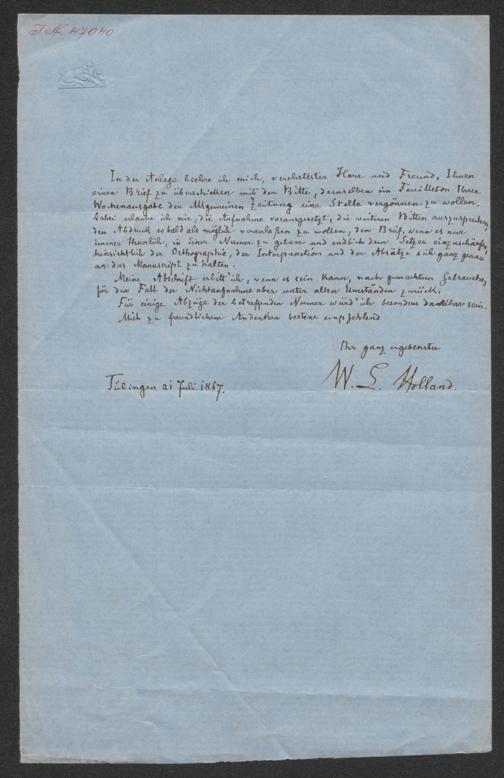 J.N. 47040
In der Anlage beehre ich mich, verehrtester Herr und Freund, Ihnen
einen Brief zu überschicken mit der Bitte, demselben im Feuilleton Ihrer
Wochenausgabe der Allgemeinen Zeitung eine Stelle vergönnen zu wollen.
Dabei erlaube ich mir, die Aufnahme vorausgesetzt, die weiteren Bitten auszusprechen,
den Abdruck so bald als möglich veranlaßen zu wollen, den Brief, wenn es nur
immer thunlich, in einer Numer zu geben und endlich dem Setzer einzuschärfen,
hinsichtlich der Orthographie, der Interpunction und der Absätze sich ganz genau
an das Manuscript zu halten.
Meine Abschrift erbitt' ich, wenn es sein kann, nach gemachtem Gebrauche,
für den Fall der Nichtaufnahme aber unter allen Umständen zurück.
Für einige Abzüge der betreffenden Numer würd' ich besonders dankbar sein.
Mich zu freundlichem Andenken bestens empfehlend
Ihr ganz ergebenster
W. L. Holland.
Tübingen 21 Juli 1867.